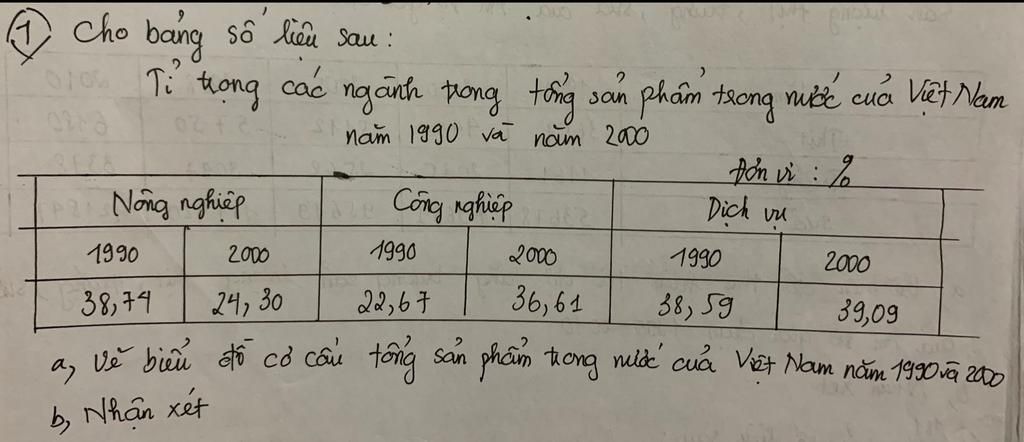 1 Cho bảng số liệu sau:
Tỉ trọng các ngành trong tổng sản phẩm trong nước của Việt Nam
năm 1990 và năm 2000
Đơn vị: %
Nông nghiệp Công nghiệp Dịch vụ
1990 2000 1990 2000 1990 2000
38,74 24,30 22,67 36,61 38,59 39,09
a, Vẽ biểu đồ cơ cấu tổng sản phẩm trong nước của Việt Nam năm 1990 và 2000
b, Nhận xét